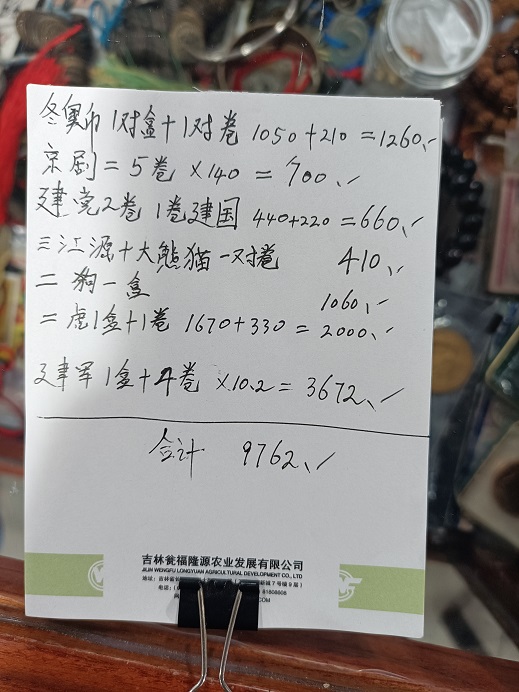 冬奥币1对盒+1对卷 1050+210=1260、
京剧=5卷×140=700、
建党2卷 1卷建国 440+220=660、
三江源+大熊猫一对卷 410、
二狗一盒 1060、
二虎1盒+1卷 1670+330=2000、
建军1盒+4卷 ×10.2=3672、
合计 9762、
吉林瓮福隆源农业发展有限公司
JILIN WENGFU LONGYUAN AGRICULTURAL DEVELOPMENT CO., LTD